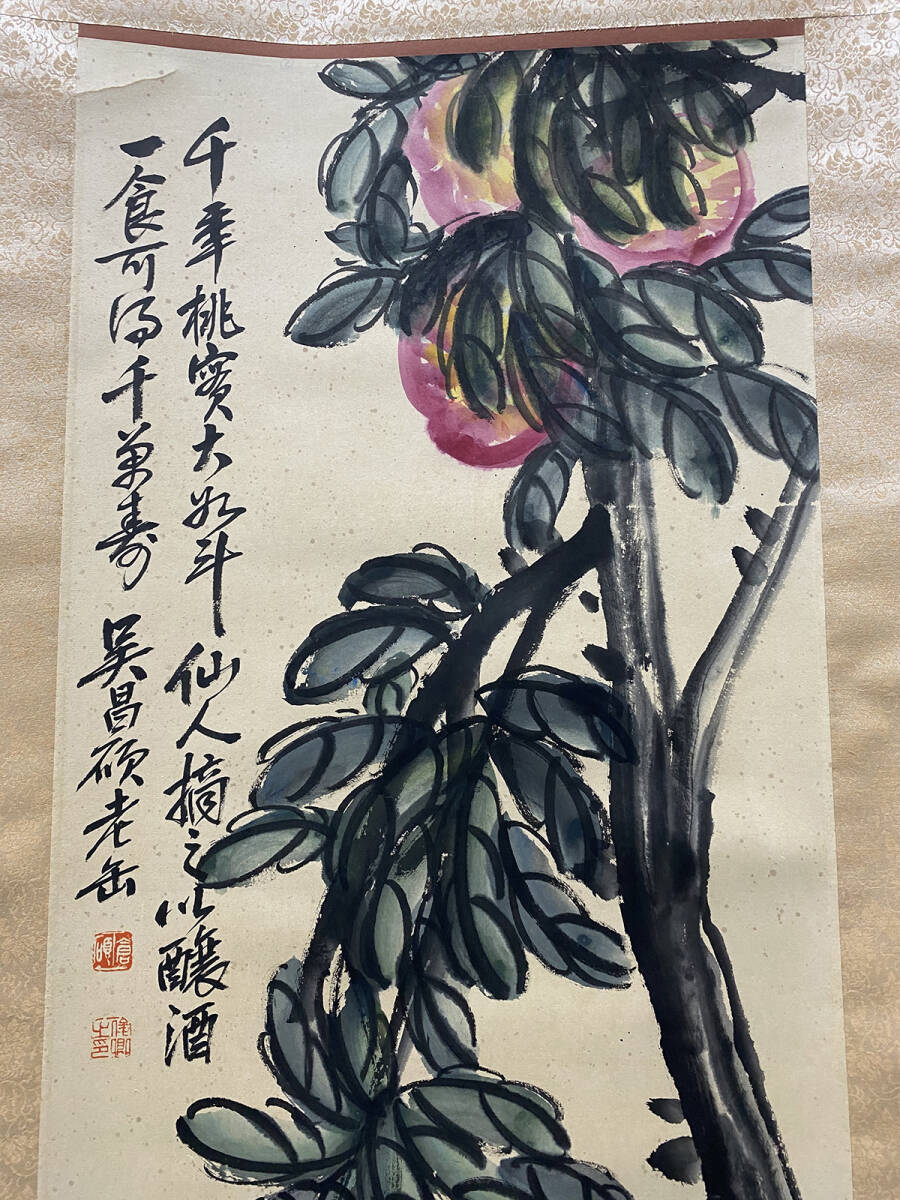 千年桃實大如斗仙人摘之以釀酒
一食可得千萬壽 吳昌碩老缶
倉碩
俊卿之印